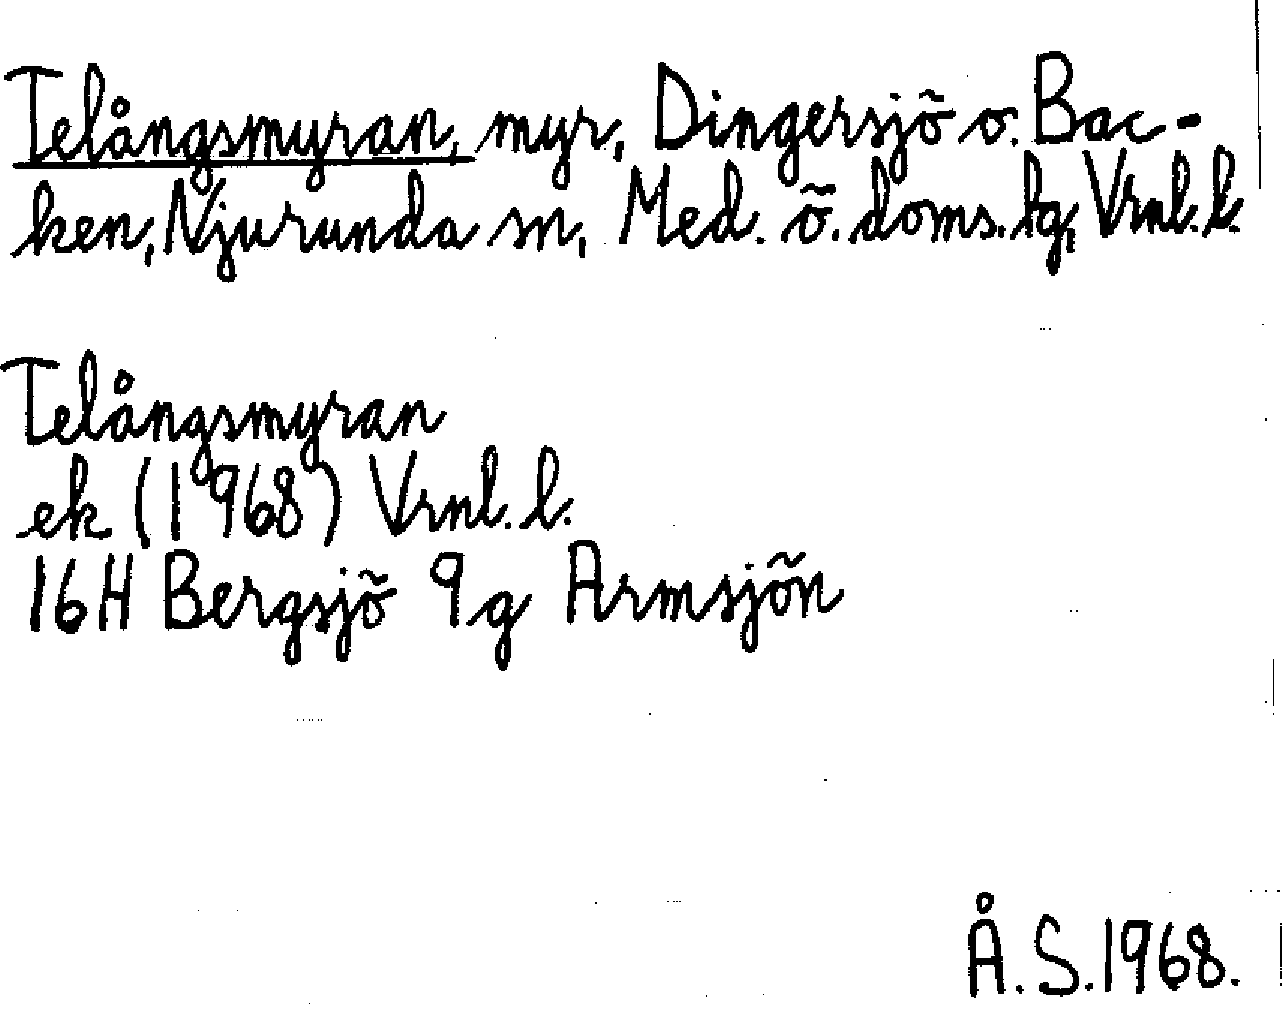 Telångsmyran, myr, Dingersjö o. Bac-
ken, Njurunda sn, Med. ö. doms. lg, Vrnl. l.
Telångsmyran
ek (1968) Vrnl. l.
16H Bergsjö 9g Armsjön
Å.S.1968.